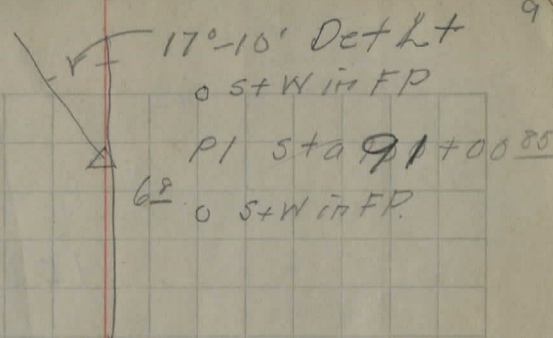 9
17°-10' Def Lt
o St W in FP
PI Sta 91+00 85
68 o St W in FP.